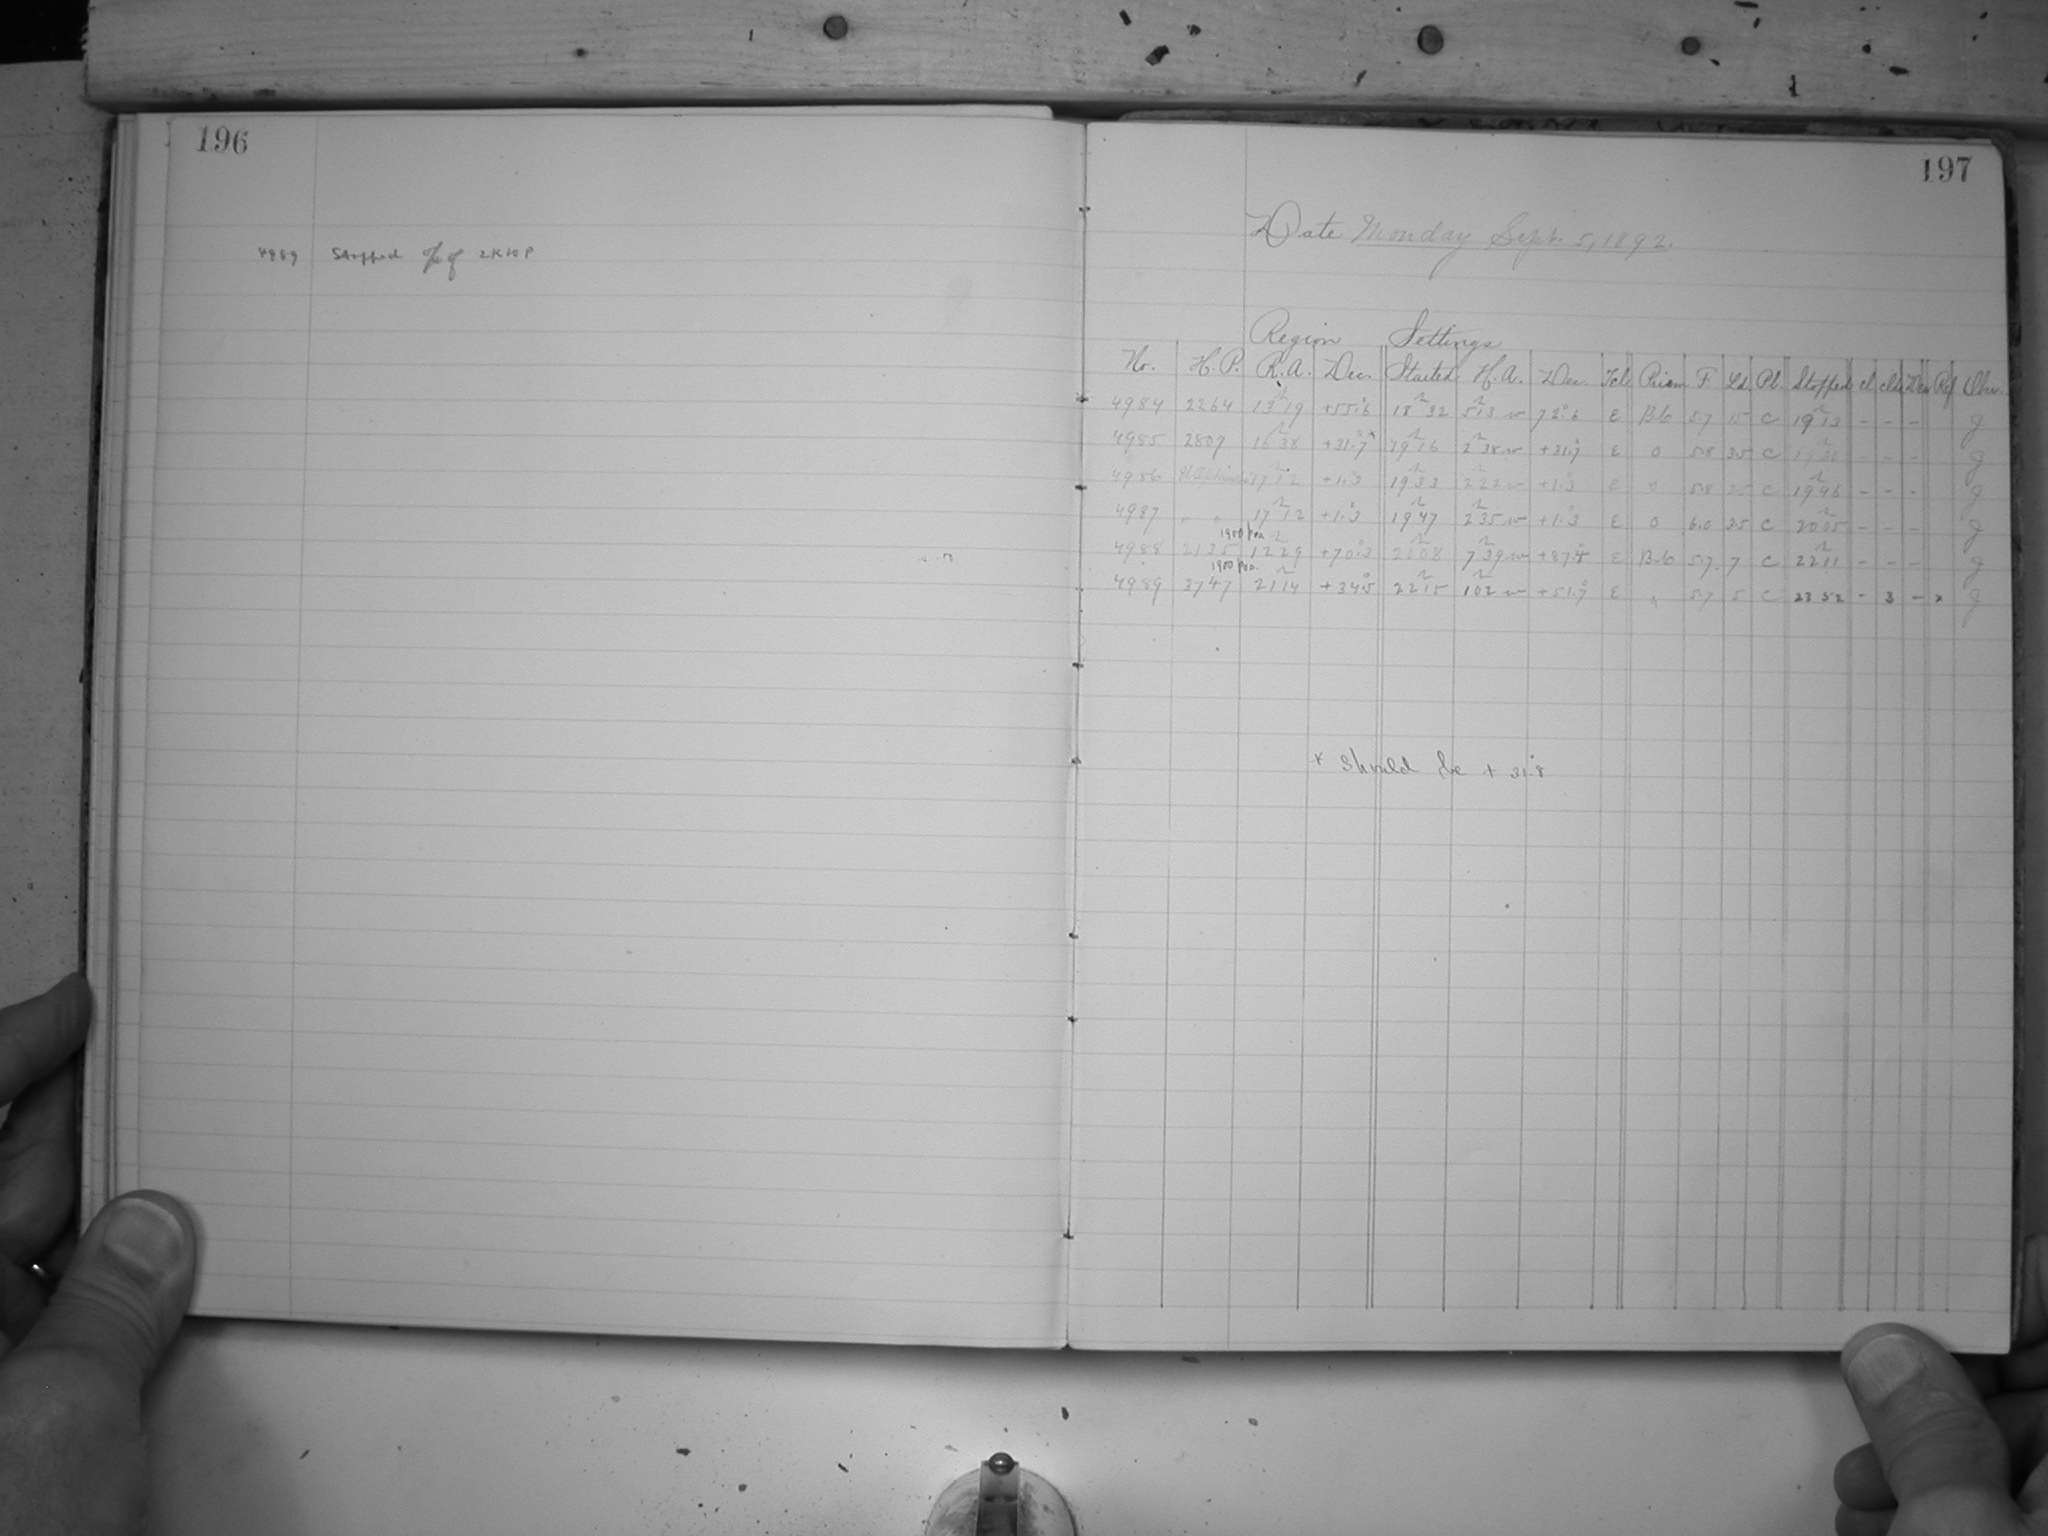 196
4989 Stopped of 2K10P
197
Date Monday Sept. 5, 1892.
Region Settings
No. H.P. R.A. Dec. Started H.A. Dec. Tel. Prism F Ld. Pl. Stopped cl cld Dew Ref Obsr.
4984 2264 13h19 +55°.6 18h32 513 w 72°.6 E B.6 5.7 15 C 19h13 - - - J
4985 2809 16h38 +31°.7* 19h16 2h38 w +31°.7 E 0 5.8 35 C - - - J
4986 17h12 +1°.3 19h33 222 w +1°.3 E 0 5.8 35 C 19h46 - - - J
4987 " " 17h12 +1°.3 19h47 2h35 w +1°.3 E 0 6.0 35 C 2005 - - - J
1900 Pos.
4988 2135 1229 +70°.3 2008 7h39 w +87°.4 E B.6 5.7 7 C 22h11 - - - J
1900 Pos.
4989 3747 21h14 +34°.5 22h15 1h02 w +51°.7 E 5.7 5 C 23 52 - 3 - x J
* Should be + 31°.8